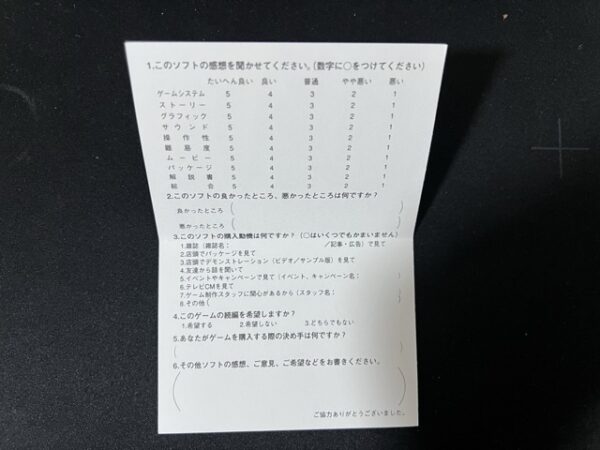 1.このソフトの感想を聞かせてください。(数字に○をつけてください)
たいへん良い 良い 普通 やや悪い 悪い
ゲームシステム 5 4 3 2 1
ストーリー 5 4 3 2 1
グラフィック 5 4 3 2 1
サウンド 5 4 3 2 1
操作性 5 4 3 2 1
難易度 5 4 3 2 1
ムービー 5 4 3 2 1
パッケージ 5 4 3 2 1
解説書 5 4 3 2 1
総合 5 4 3 2 1
2.このソフトの良かったところ、悪かったところは何ですか?
良かったところ (
悪かったところ (
3.このソフトの購入動機は何ですか?(○はいくつでもかまいません)
1.雑誌(雑誌名: /記事・広告)で見て
2.店頭でパッケージを見て
3.店頭でデモンストレーション(ビデオ/サンプル版)を見て
4.友達から話を聞いて
5.イベントやキャンペーンで見て(イベント、キャンペーン名: )
6.テレビCMを見て
7.ゲーム制作スタッフに関心があるから(スタッフ名: )
8.その他( )
4.このゲームの続編を希望しますか?
1.希望する 2.希望しない 3.どちらでもない
5.あなたがゲームを購入する際の決め手は何ですか?
( )
6.その他ソフトの感想、ご意見、ご希望などをお書きください。
( )
ご協力ありがとうございました。